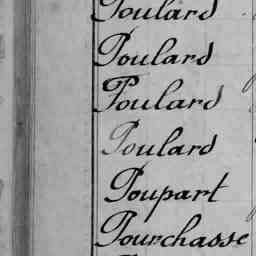 Poulard
Poulard
Poulard
Poulard
Poupart
Pourchasse